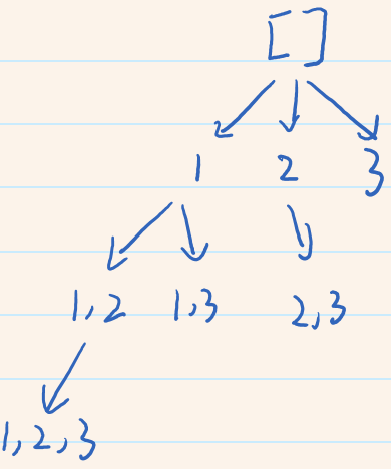 [ ]
1 2 3
1,2 1,3 2,3
1,2,3